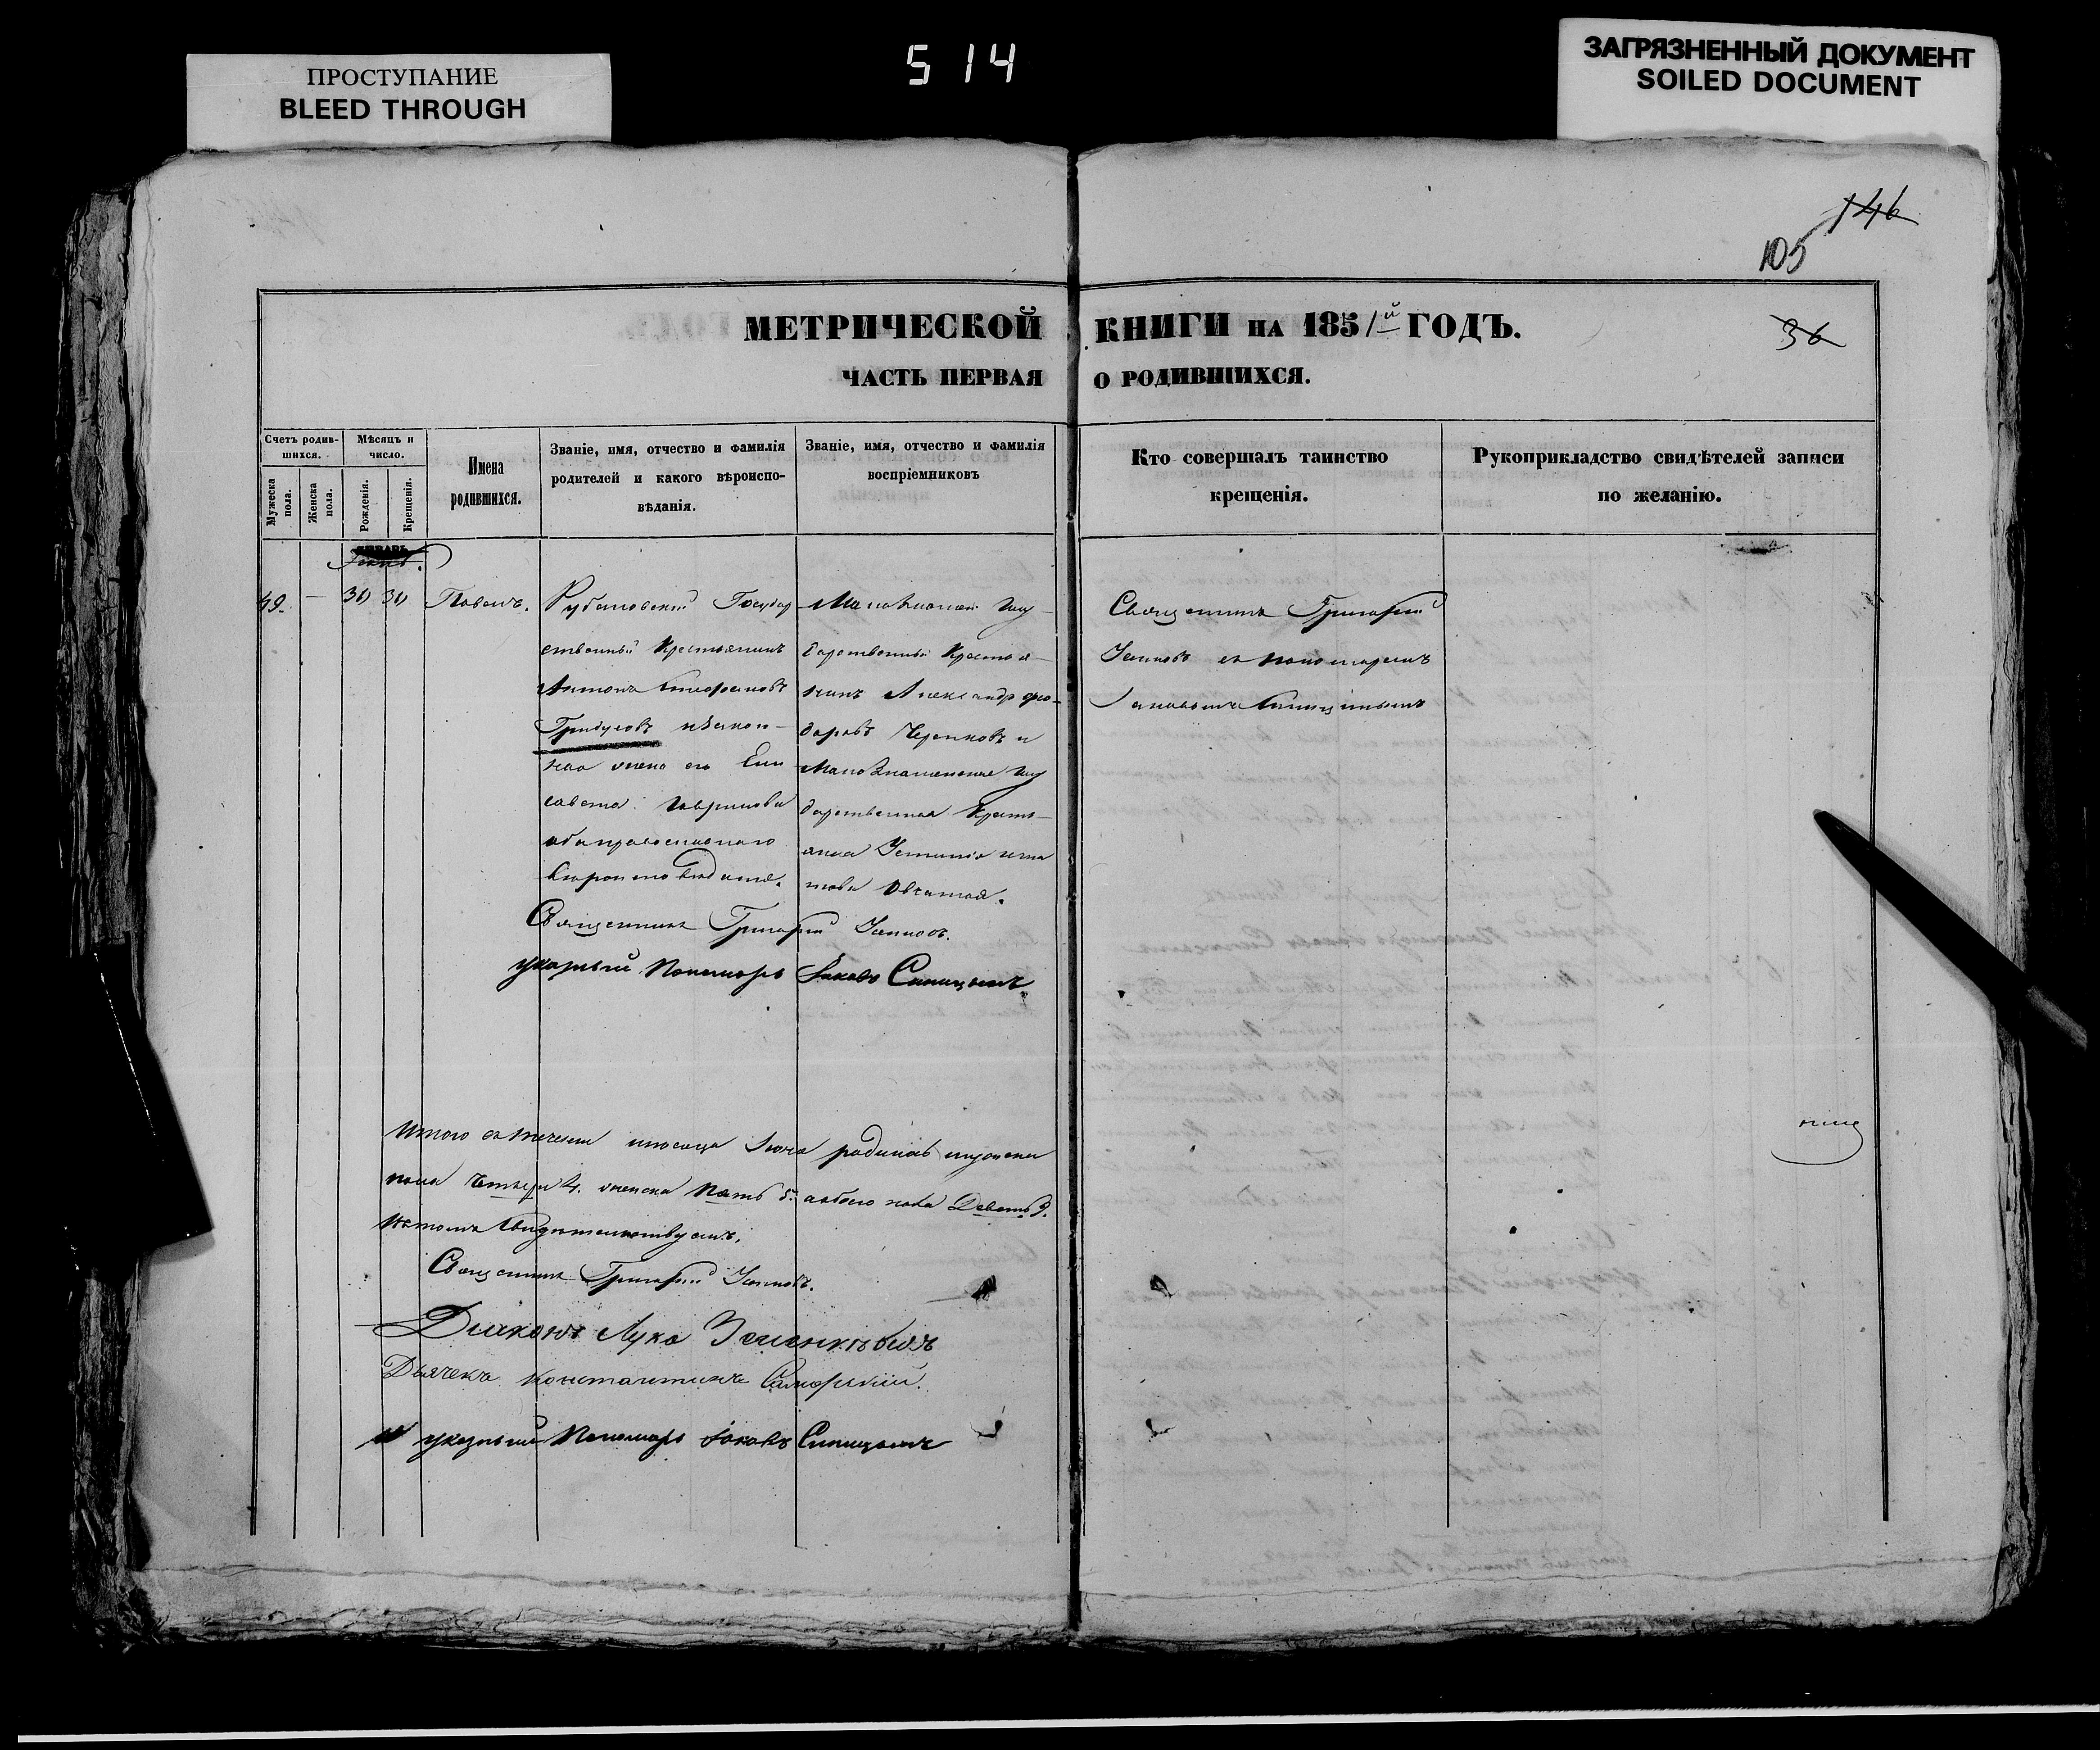 ПРОСТУПАНИЕ
BLEED THROUGH
514
ЗАГРЯЗНЕННЫЙ ДОКУМЕНТ
SOILED DOCUMENT
146
105
36
МЕТРИЧЕСКОЙ КНИГИ НА 1851й ГОДЪ.
ЧАСТЬ ПЕРВАЯ О РОДИВШИХСЯ.
Счетъ родившихся.
Мужеска пола.
Женска пола.
Мѣсяцъ и число.
Рожденія.
Крещенія.
Имена родившихся.
Званіе, имя, отчество и фамилія
родителей и какого вѣроиспо-
вѣданія.
Званіе, имя, отчество и фамилія
воспріемниковъ
Кто совершалъ таинство
крещенія.
Рукоприкладство свидѣтелей записи
по желанію.
30 30 Павелъ.
Рубановскій Государ
ственный Крестьянинъ
Антонъ
Трибусовъ и закон-
ная жена его Ели
савета Гаврилова
оба православнаго
вероисповеданія.
Малознаменскій Госу
дарственный Крестья-
нинъ Александръ Фео-
доровъ Черниковъ и
Малознаменская Госу
дарственная Кресть-
янка Устинія
Священникъ Григорій
съ пономаремъ
Іаковомъ Синицынымъ
Священникъ Григорій
указный Пономарь Іаковъ Синицынъ
Итого въ теченіи месяца Іюня родилось мужеска
пола Четыре 4. женска Пять 5. а обоего пола Девять 9.
въ томъ Свидетельствуемъ.
Священникъ Григорій
Діаконъ Лука
Дьячекъ Константинъ
указный Пономарь Іаковъ Синицынъ